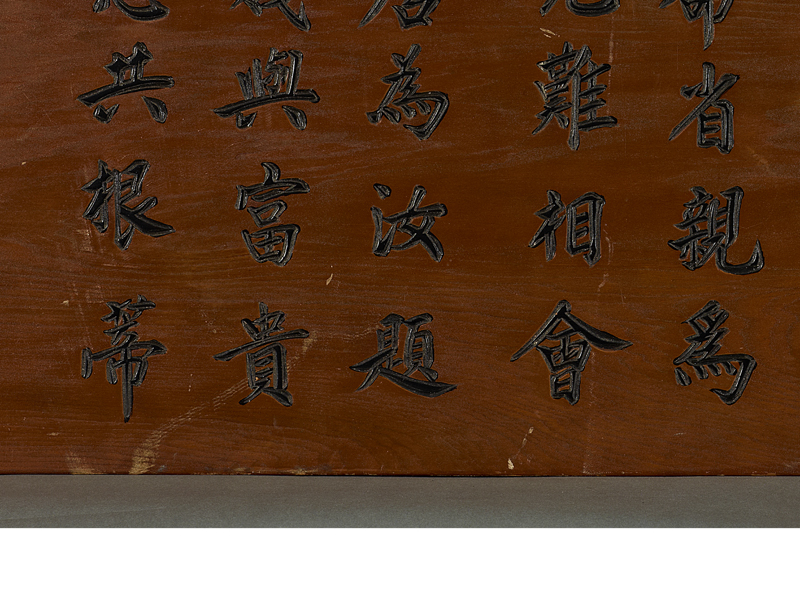 省親爲
難相會
為汝題
與富貴
共根蒂